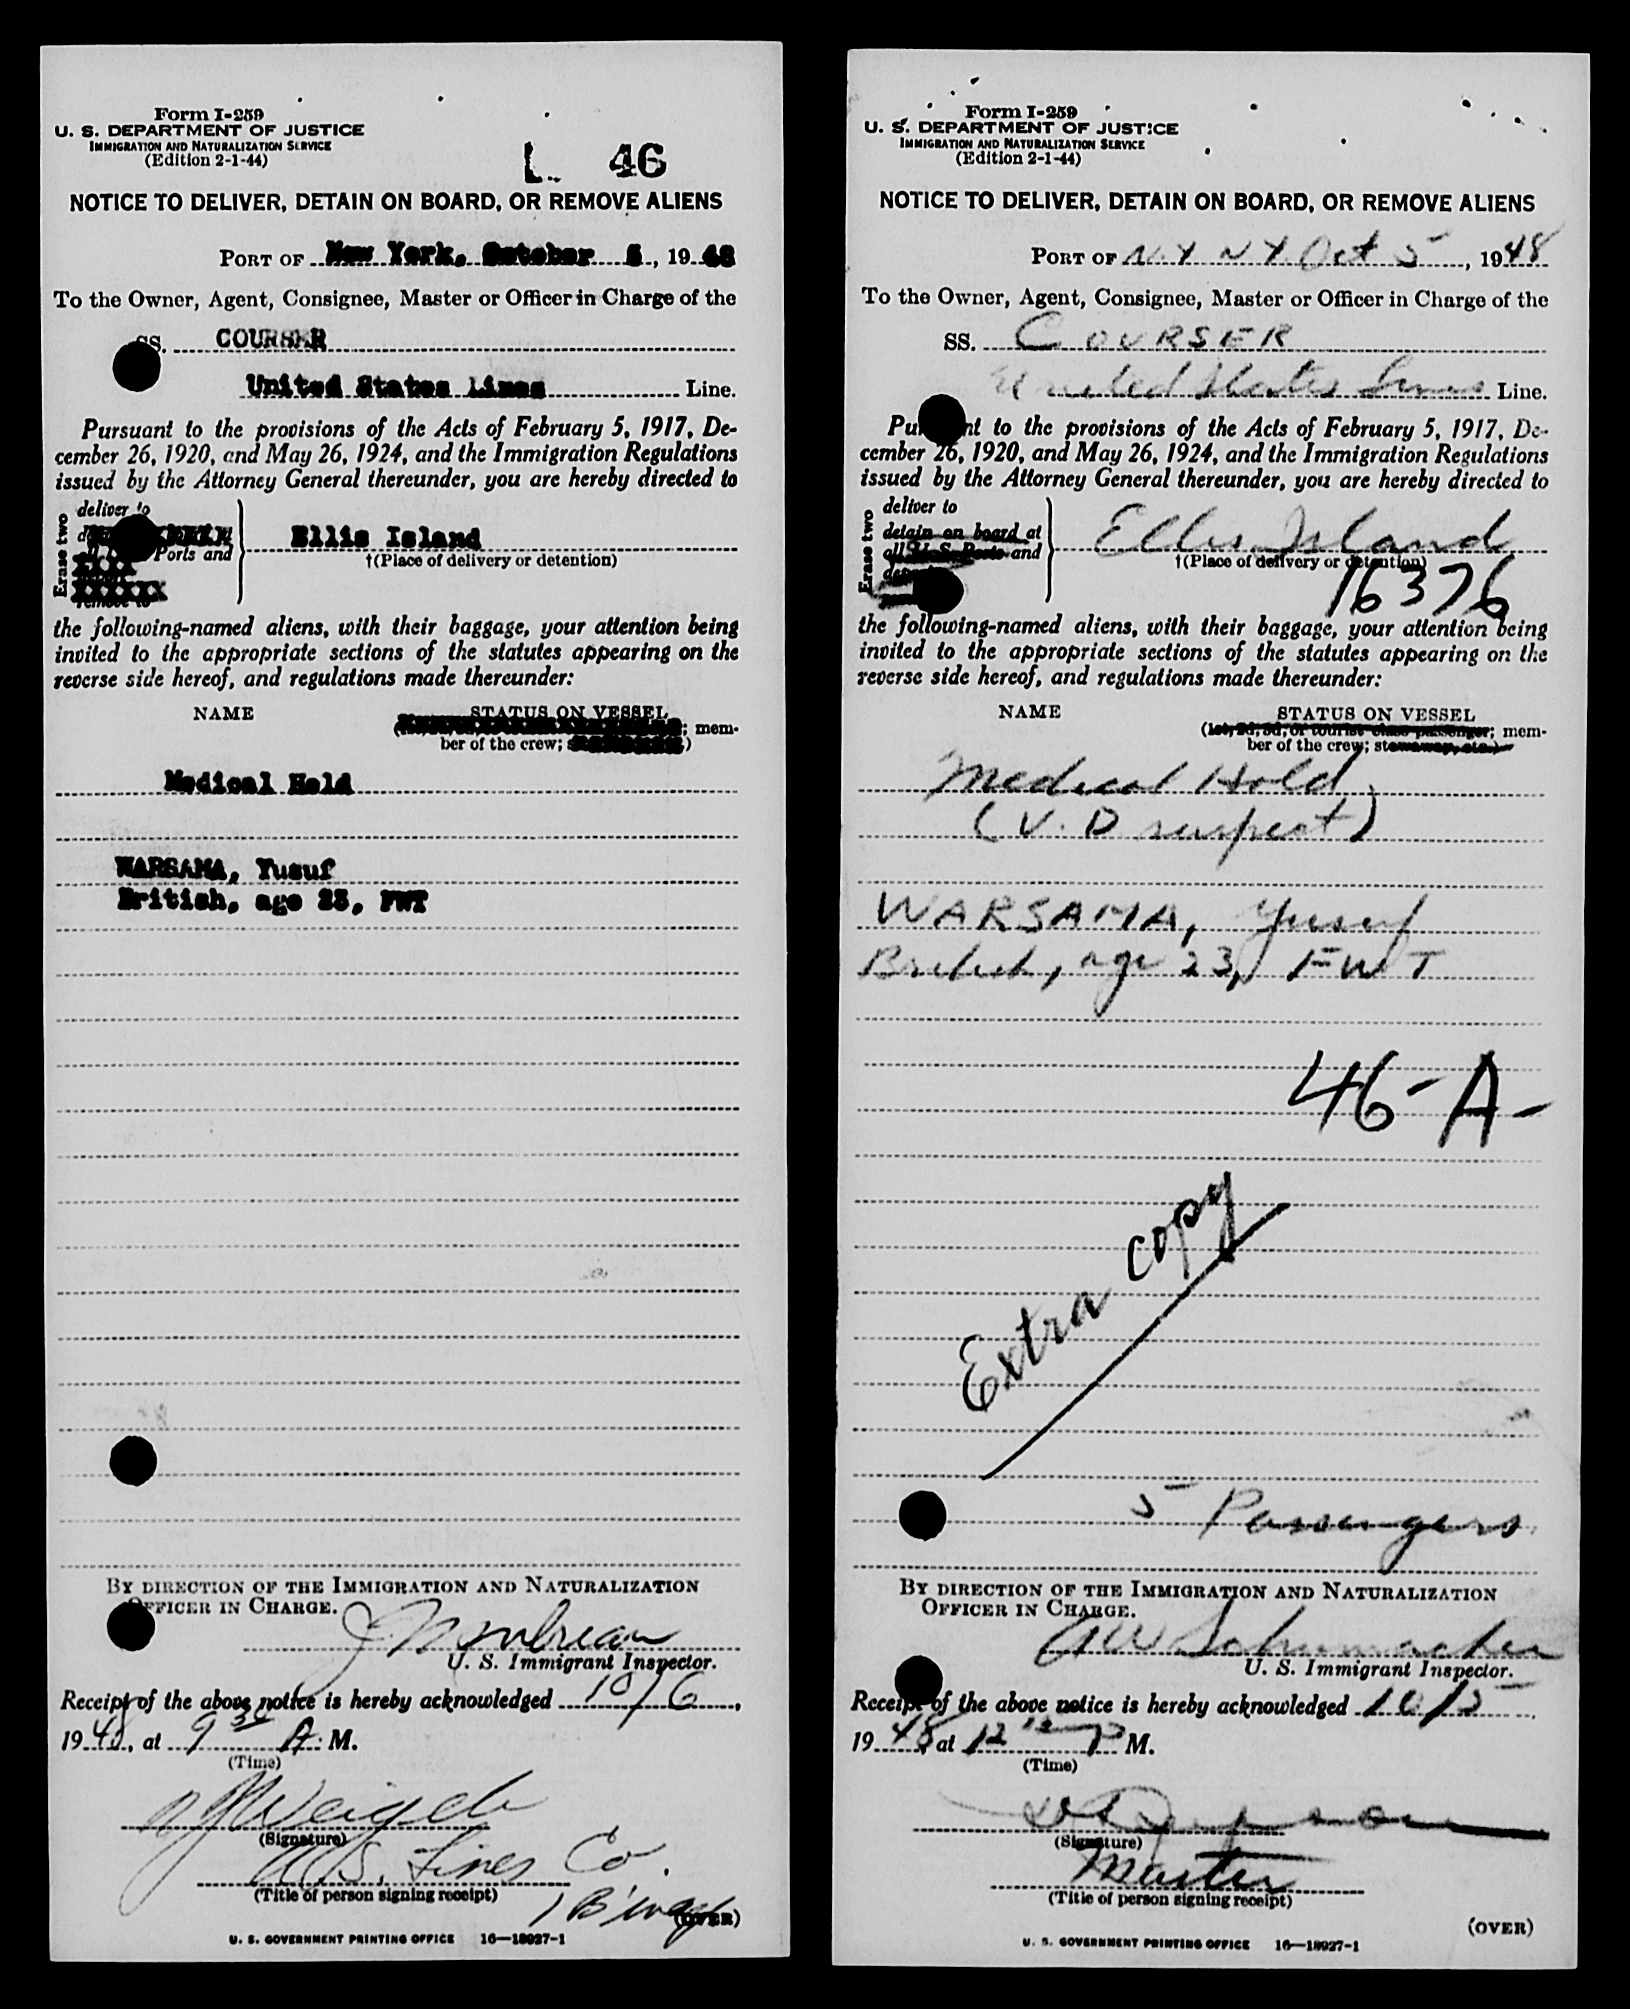 Form I-259
U. S. DEPARTMENT OF JUSTICE
IMMIGRATION AND NATURALIZATION SERVICE
(Edition 2-1-44)
L 46
NOTICE TO DELIVER, DETAIN ON BOARD, OR REMOVE ALIENS
PORT OF New York, October 5, 1948
To the Owner, Agent, Consignee, Master or Officer in Charge of the
SS. COURSER
United States Lines Line.
Pursuant to the provisions of the Acts of February 5, 1917, De-
cember 26, 1920, and May 26, 1924, and the Immigration Regulations
issued by the Attorney General thereunder, you are hereby directed to
Erase two
deliver to
Ports and
remove to
Ellis Island
†(Place of delivery or detention)
the following-named aliens, with their baggage, your attention being
invited to the appropriate sections of the statutes appearing on the
reverse side hereof, and regulations made thereunder:
NAME STATUS ON VESSEL
; mem-
ber of the crew; )
Medical Hold
WARSAMA, Yusuf
British, age 23, FWT
BY DIRECTION OF THE IMMIGRATION AND NATURALIZATION
OFFICER IN CHARGE.
U. S. Immigrant Inspector.
Receipt of the above notice is hereby acknowledged 10/6,
1948, at 9 30 A. M.
(Time)
(Signature)
U.S. Lines Co.
(Title of person signing receipt)
(OVER)
U. S. GOVERNMENT PRINTING OFFICE 16—18927-1
Form I-259
U. S. DEPARTMENT OF JUSTICE
IMMIGRATION AND NATURALIZATION SERVICE
(Edition 2-1-44)
NOTICE TO DELIVER, DETAIN ON BOARD, OR REMOVE ALIENS
PORT OF N.Y. N Y Oct 5, 1948
To the Owner, Agent, Consignee, Master or Officer in Charge of the
SS. COURSER
United States Lines Line.
Pursuant to the provisions of the Acts of February 5, 1917, De-
cember 26, 1920, and May 26, 1924, and the Immigration Regulations
issued by the Attorney General thereunder, you are hereby directed to
Erase two
deliver to
detain on board at
all U. S. Ports and
Ellis Island
†(Place of delivery or detention)
16376
the following-named aliens, with their baggage, your attention being
invited to the appropriate sections of the statutes appearing on the
reverse side hereof, and regulations made thereunder:
NAME STATUS ON VESSEL
(1st, 2d, 3d, or tourist class passenger; mem-
ber of the crew; stowaway, etc.)
Medical Hold
(V. D suspect)
WARSAMA, Yusuf
British, age 23, FWT
46-A-
Extra copy
5 Passengers
BY DIRECTION OF THE IMMIGRATION AND NATURALIZATION
OFFICER IN CHARGE.
AW Schumacher
U. S. Immigrant Inspector.
Receipt of the above notice is hereby acknowledged 10/5
1948, at 12 12 P M.
(Time)
(Signature)
Master
(Title of person signing receipt)
(OVER)
U. S. GOVERNMENT PRINTING OFFICE 16—18927-1